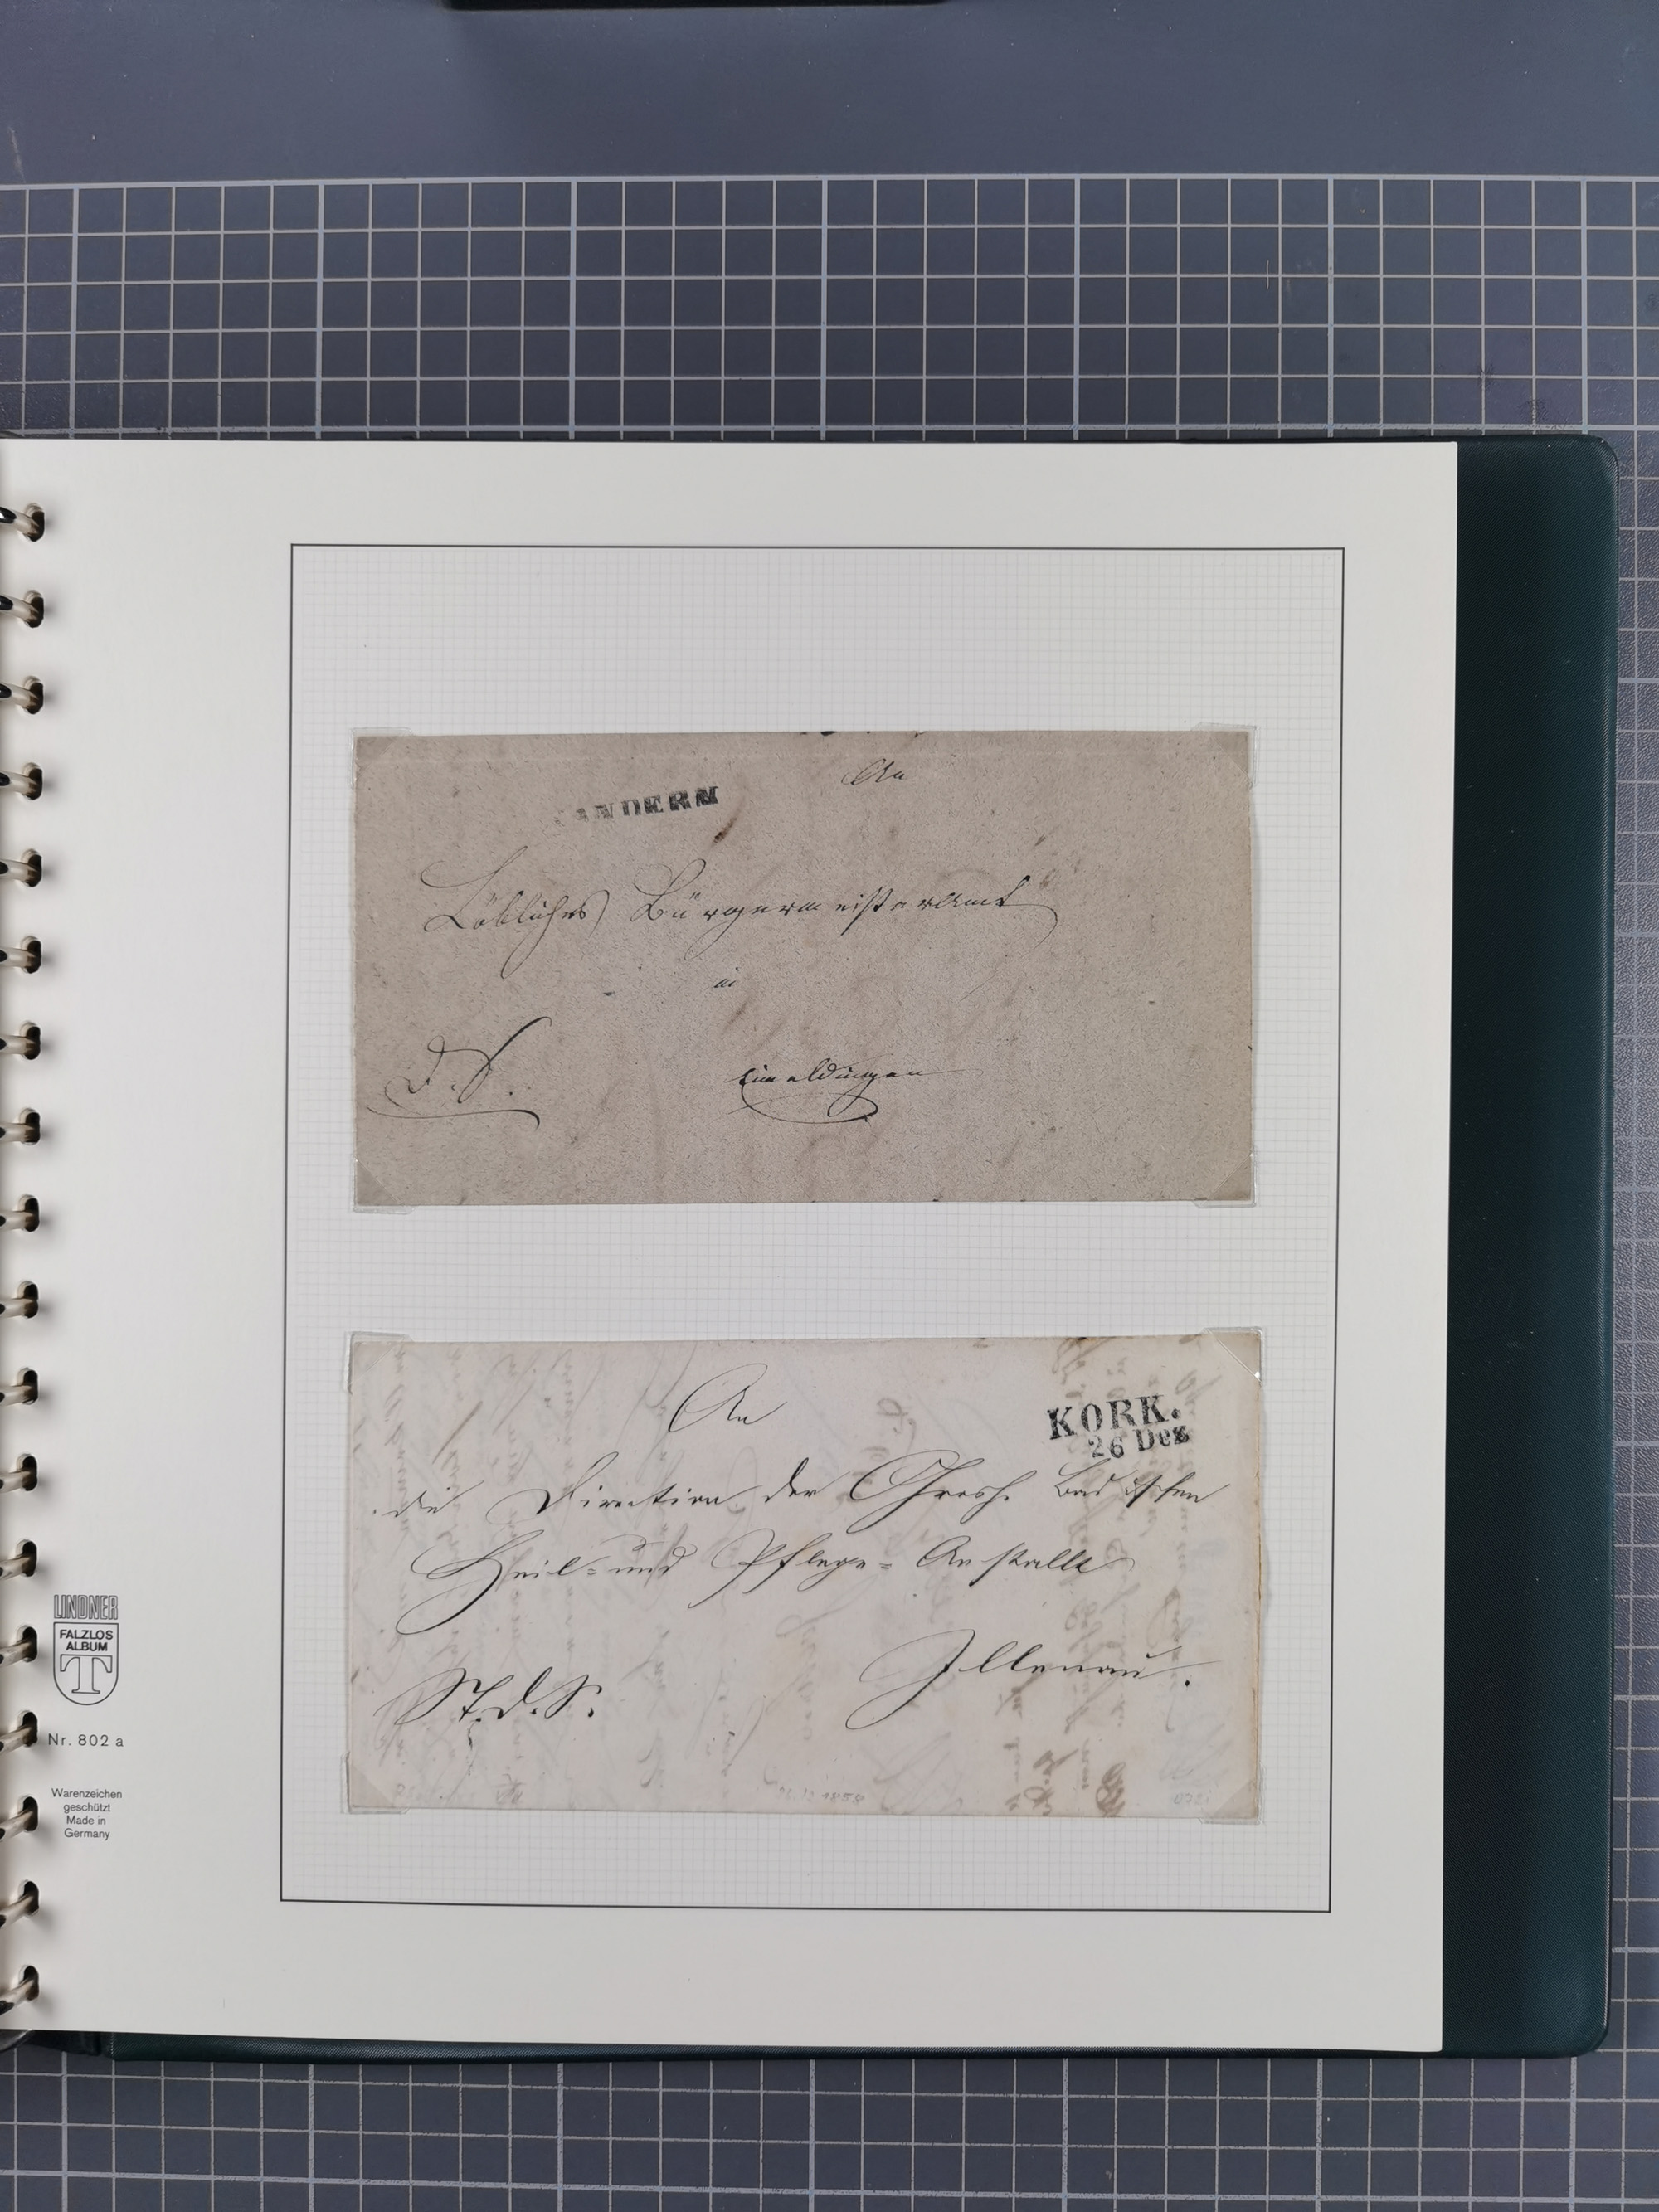 ANDERN
An
Löbliches Bürgermeisteramt
in
D. S.
Eimeldingen
An
KORK.
26 Dez
die Direction der Grosh. Badischen
Heil- und Pflege-Anstalt
Illenau.
St. d. S.
26.12.1858
LINDNER
FALZLOS
ALBUM
T
Nr. 802 a
Warenzeichen
geschützt
Made in
Germany